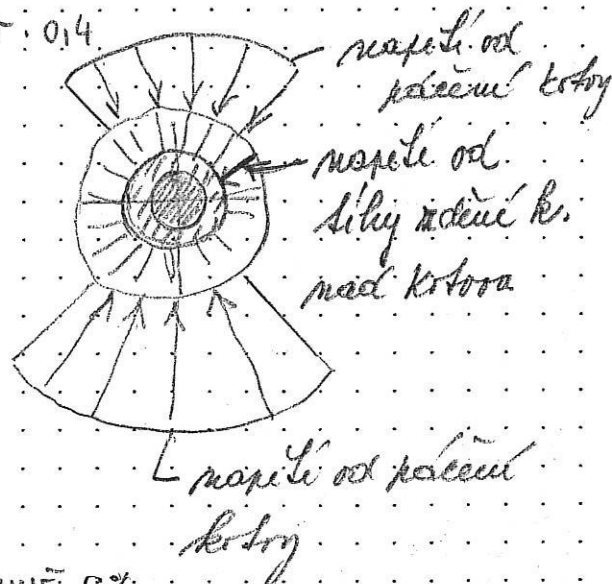 0,4
napětí od
páčení kotvy
napětí od
tíhy zděné k.
nad kotvou
napětí od páčení
kotvy